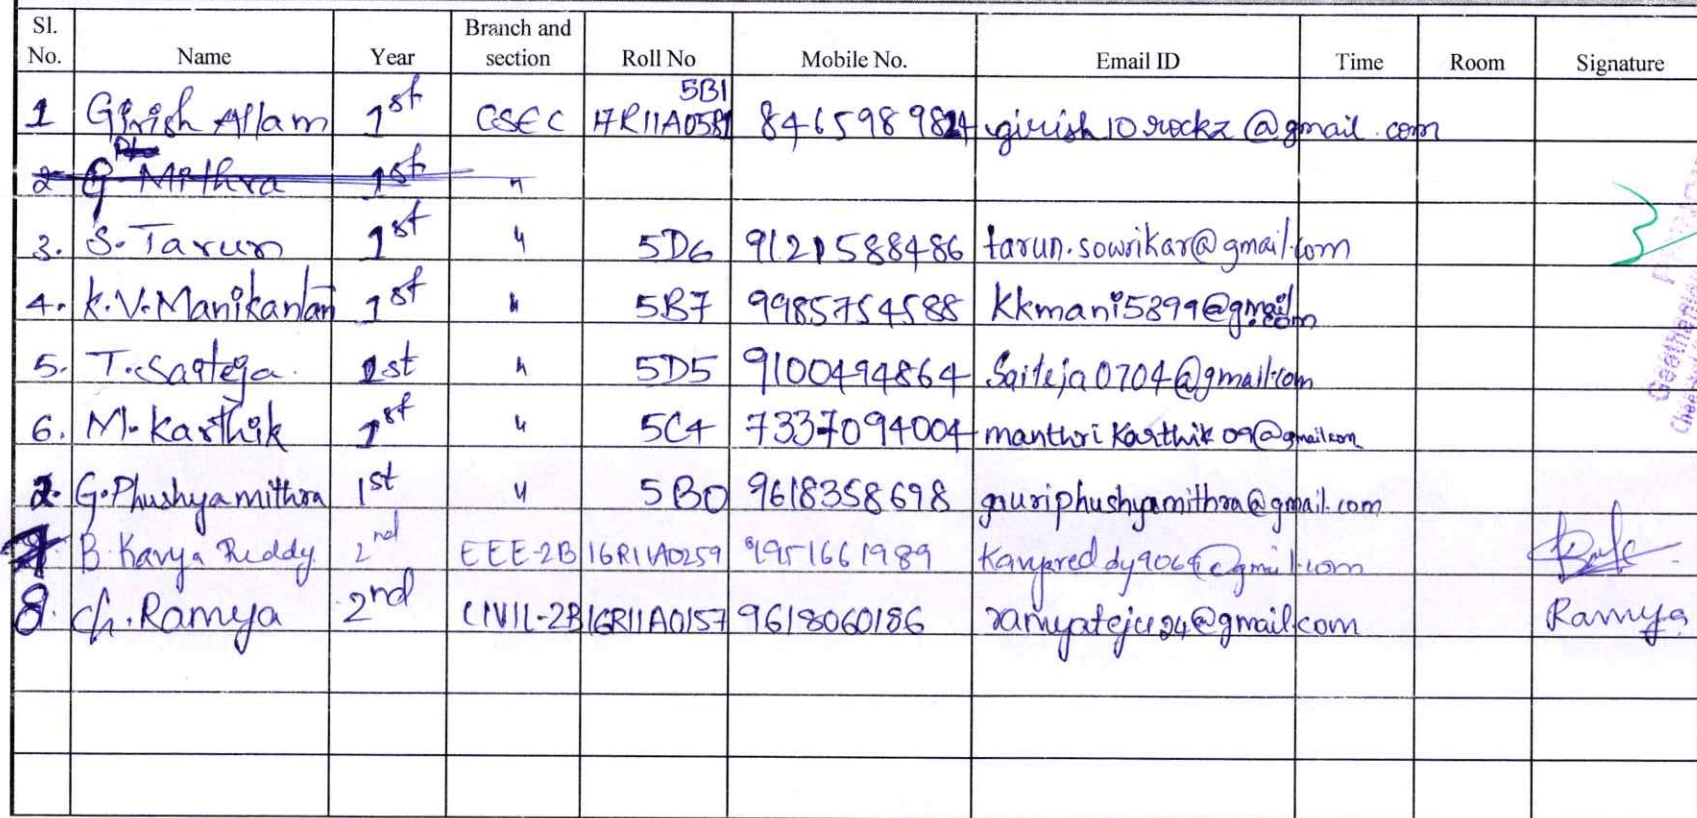 Sl. No. Name Year Branch and section Roll No Mobile No. Email ID Time Room Signature
5B1
1 Girish Allam 1st CSE C 17R11A0581 8465989824 girish10rockz@gmail.com
2 G Mithra 1st "
3. S. Tarun 1st " 5D6 9121588486 tarun.sowrikar@gmail.com
4. K.V. Manikantan 1st " 5B7 9985754588 kkmani5899@gmail.com
5. T. Saiteja. 1st " 5D5 9100494864 Saiteja0704@gmail.com
6. M. Karthik 1st " 5C4 7337094004 manthri Karthik 09@gmail.com
2. G. Phushyamithra 1st " 5B0 9618358698 gauriphushyamithra@gmail.com
B. Kavya Reddy 2nd EEE-2B 16R11A0259 9951661989
8. Ch. Ramya 2nd CIVIL-2B 16R11A0157 9618060186 ramyateju24@gmail.com Ramya